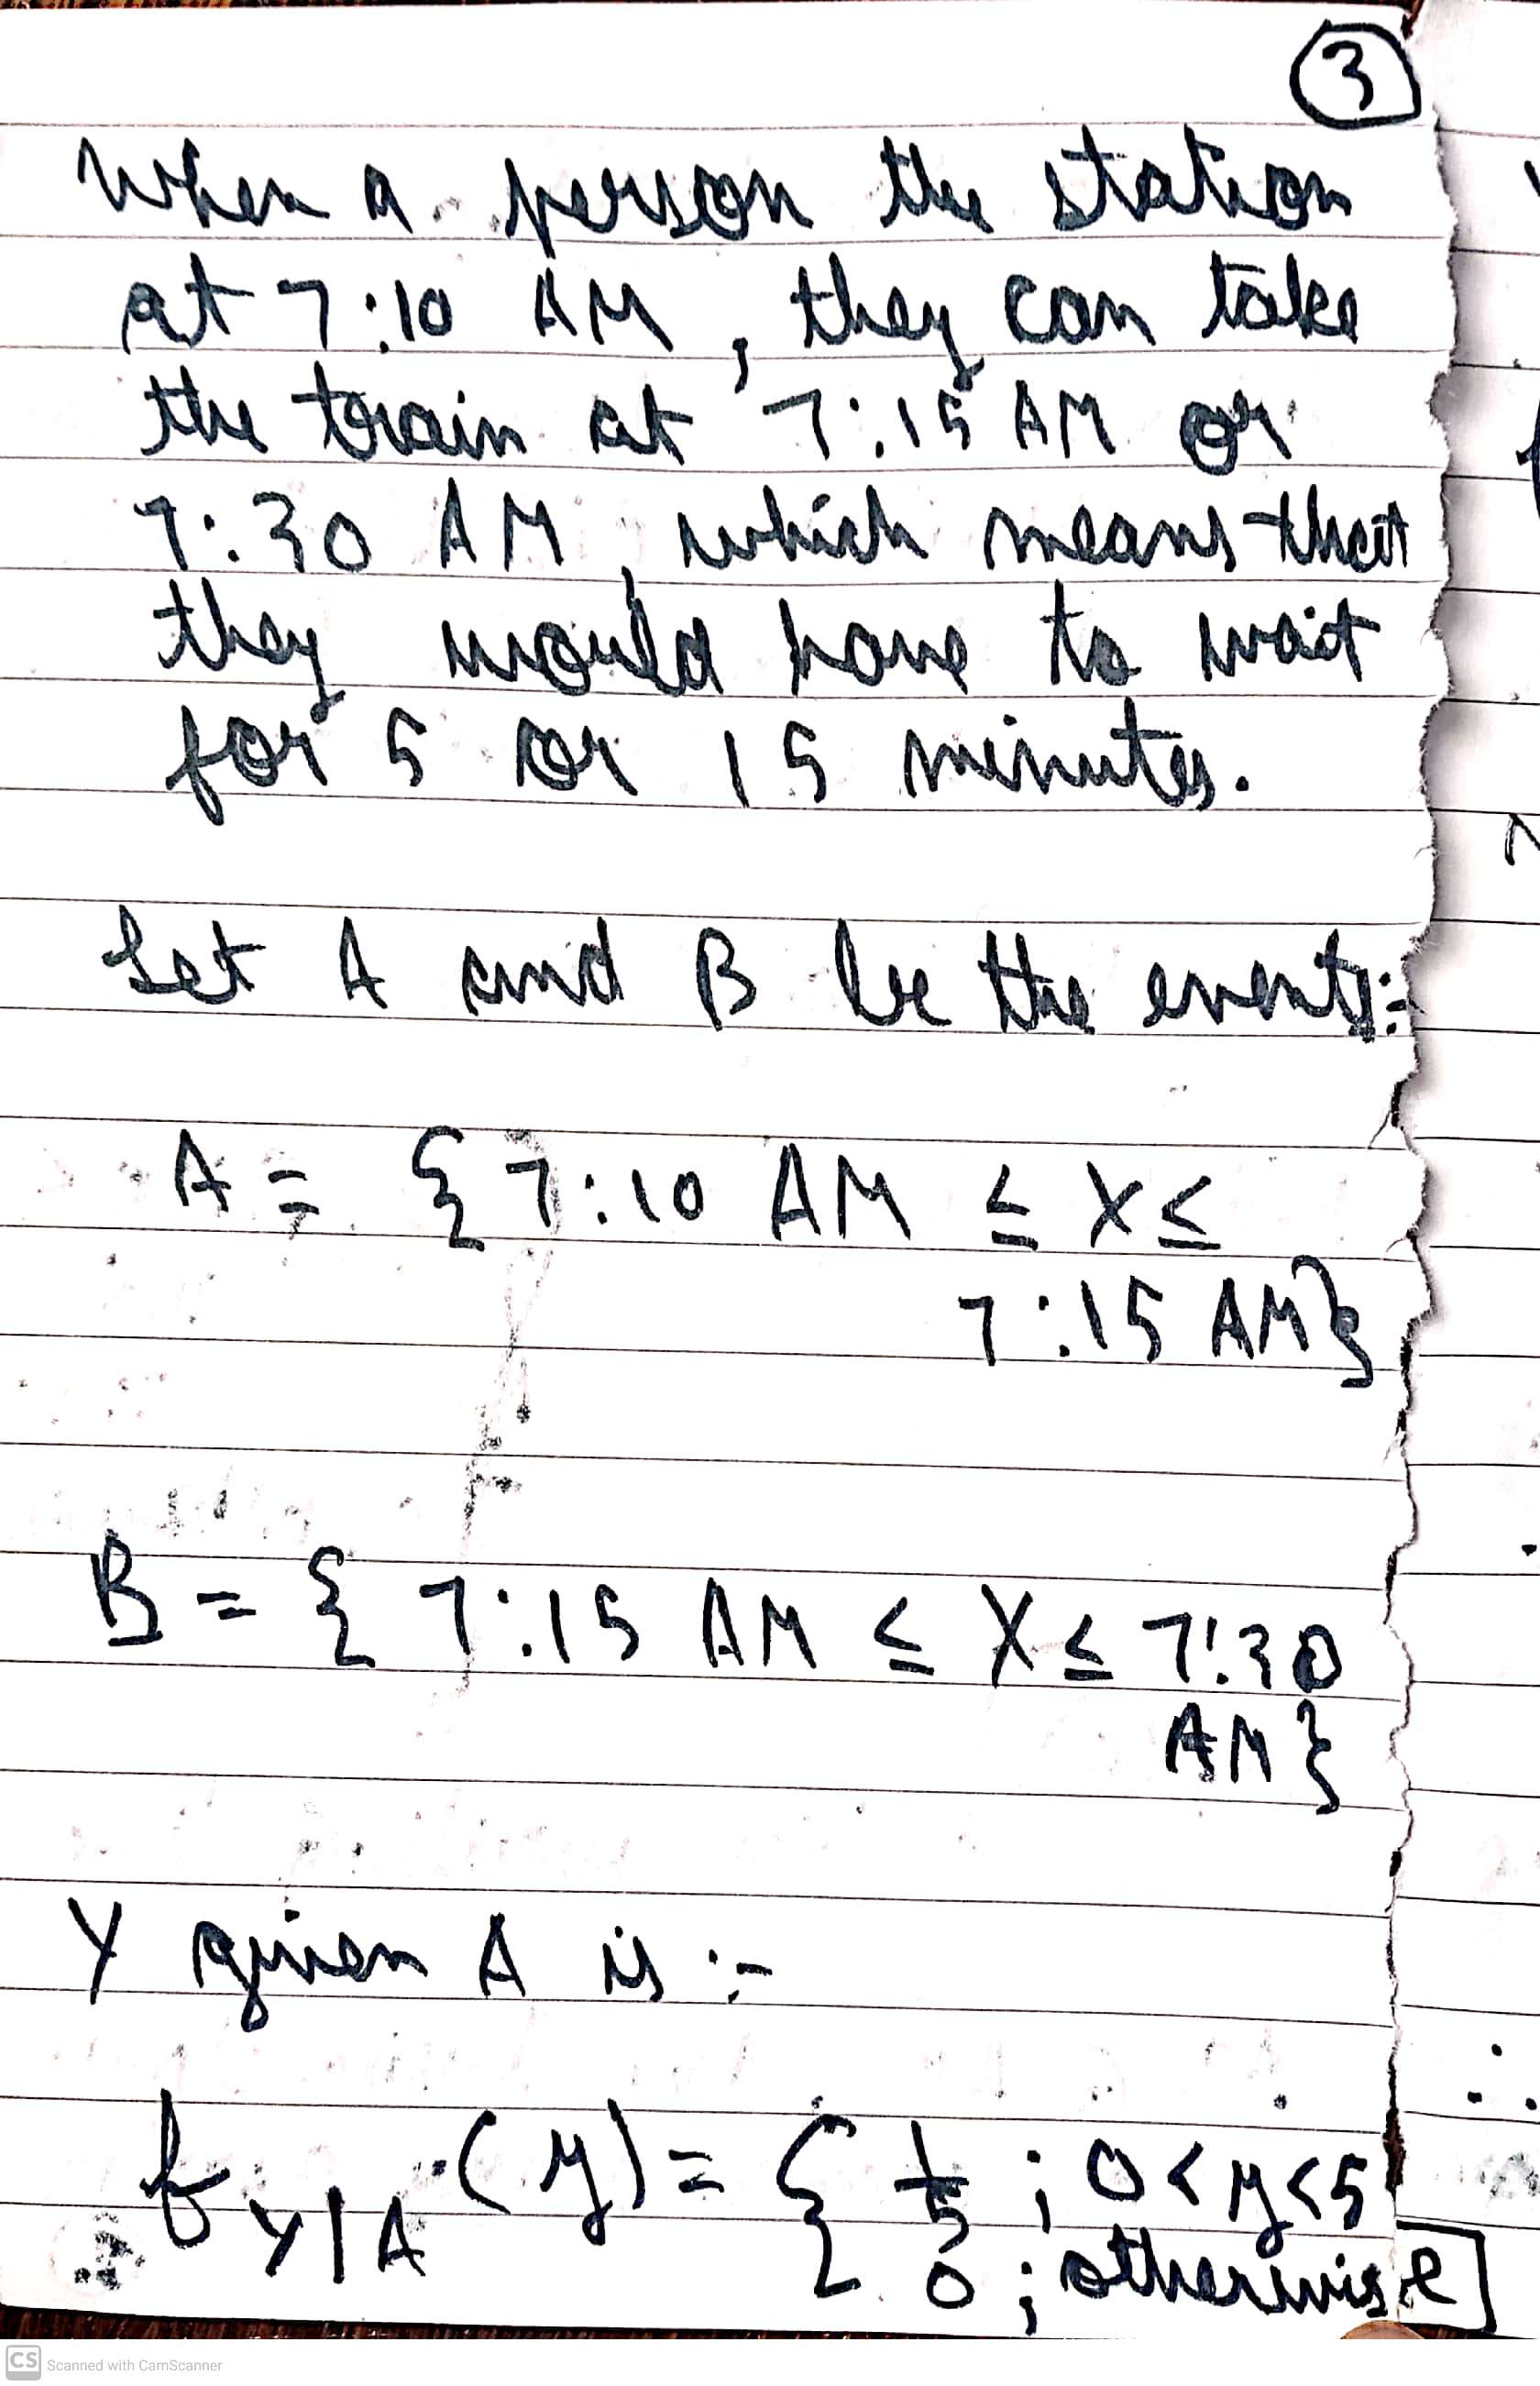 3
When a person the station
at 7:10 AM, they can take
the train at 7:15 AM or
7:30 AM, which means that
they would have to wait
for 5 or 15 minutes.
Let A and B be the events:-
A = { 7:10 AM ≤ X ≤
7:15 AM}
B = { 7:15 AM ≤ X ≤ 7:30
AM}
Y given A is :-
f_{Y|A}(y) = { 1/5 ; 0<y<5
0 ; otherwise
CS Scanned with CamScanner